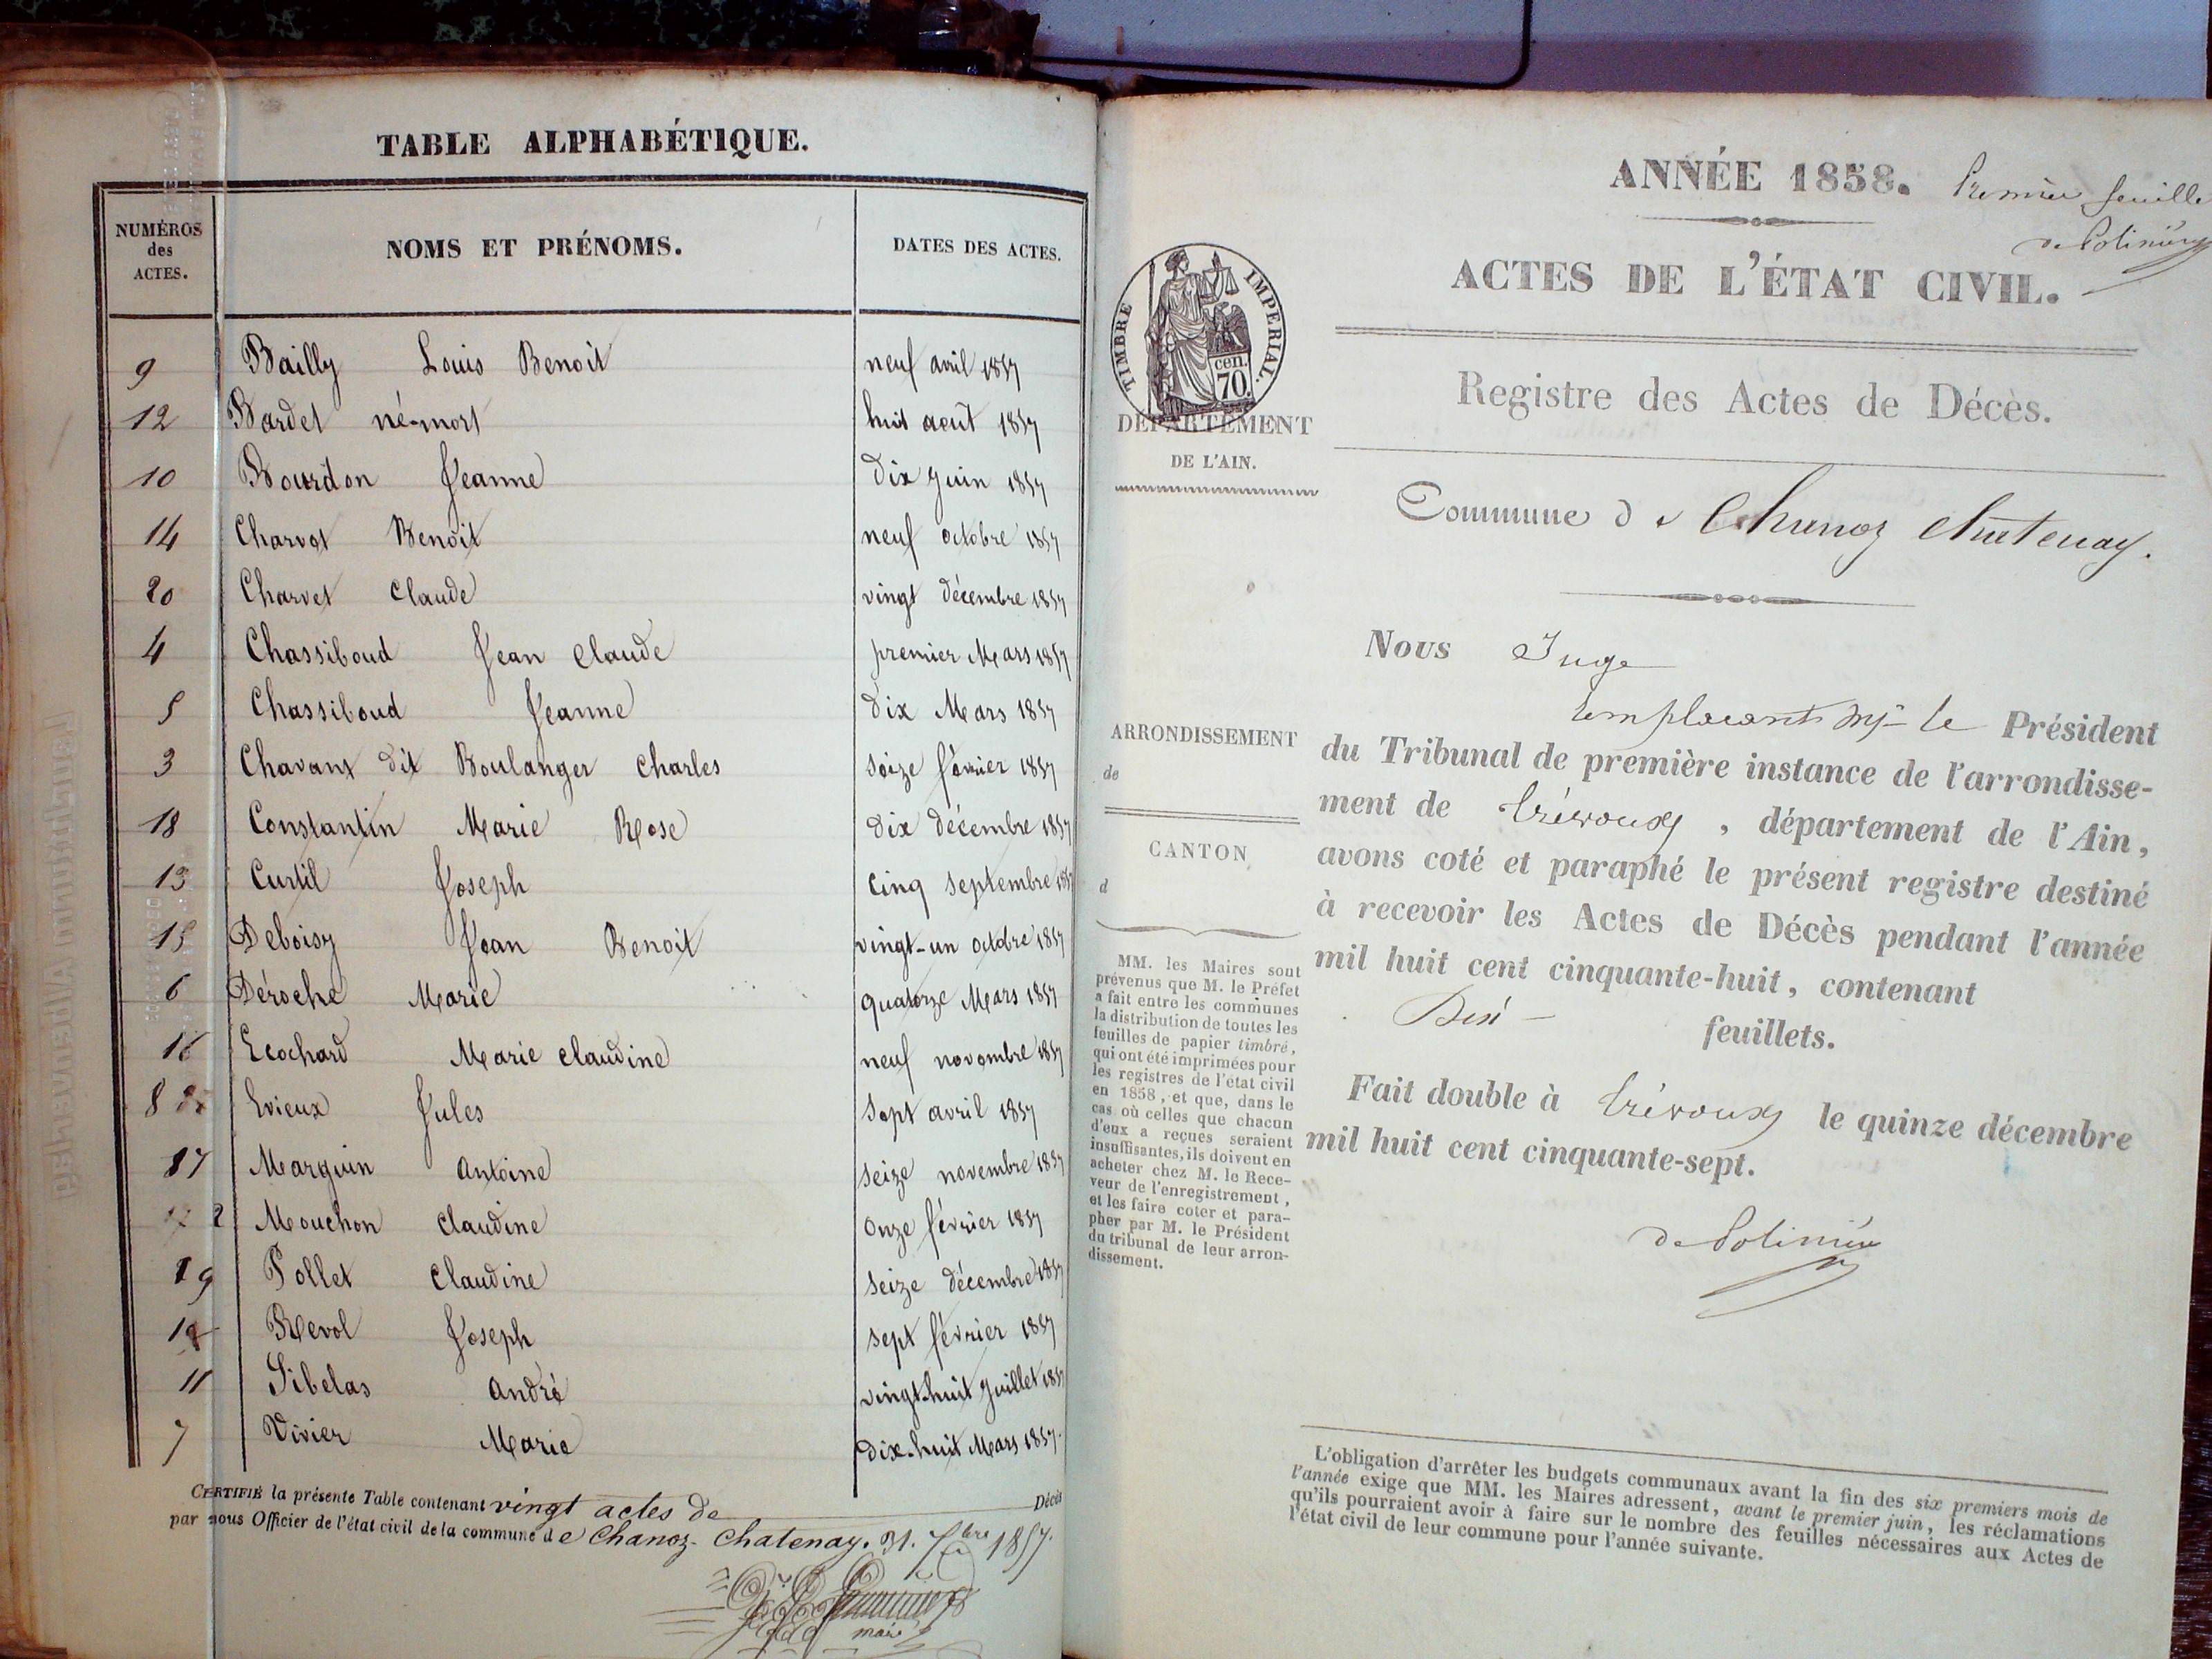 TABLE ALPHABÉTIQUE.
NUMÉROS des ACTES. NOMS ET PRÉNOMS. DATES DES ACTES.
9 Bailly Louis Benoit neuf avril 1857
12 Bardet né-mort huit août 1857
10 Bourdon Jeanne dix juin 1857
14 Charvet Benoit neuf octobre 1857
20 Charvet Claude vingt décembre 1857
4 Chassiboud Jean Claude premier Mars 1857
5 Chassiboud Jeanne dix Mars 1857
3 Chavant dit Boulanger Charles seize février 1857
18 Constantin Marie Rose dix décembre 1857
13 Curtil Joseph cinq septembre 1857
15 Deboisy Jean Benoit vingt-un octobre 1857
6 Déroche Marie quatorze Mars 1857
16 Ecochard Marie Claudine neuf novembre 1857
8 Evieux Jules sept avril 1857
17 Marguin Antoine seize novembre 1857
2 Mouchon Claudine onze février 1857
19 Pollet Claudine seize décembre 1857
1 Revol Joseph sept février 1857
11 Sibelas André vingt-huit juillet 1857
7 Vivier Marie dix-huit Mars 1857.
CERTIFIÉ la présente Table contenant vingt actes de Décès
par nous Officier de l'état civil de la commune de Chanoz-Chatenay. 31. 1857.
maire
ANNÉE 1858. Premier feuillet
de Polinière
ACTES DE L'ÉTAT CIVIL.
TIMBRE IMPERIAL.
cen.
70.
Registre des Actes de Décès.
DÉPARTEMENT
DE L'AIN.
Commune de Chanoz Chatenay.
Nous Juge
remplaçant Mr le Président
ARRONDISSEMENT
de
du Tribunal de première instance de l'arrondisse-
ment de Trévoux, département de l'Ain,
CANTON
d
avons coté et paraphé le présent registre destiné
à recevoir les Actes de Décès pendant l'année
mil huit cent cinquante-huit, contenant
Dix feuillets.
Fait double à Trévoux le quinze décembre
mil huit cent cinquante-sept.
de Polinière
MM. les Maires sont
prévenus que M. le Préfet
a fait entre les communes
la distribution de toutes les
feuilles de papier timbré,
qui ont été imprimées pour
les registres de l'état civil
en 1858, et que, dans le
cas où celles que chacun
d'eux a reçues seraient
insuffisantes, ils doivent en
acheter chez M. le Rece-
veur de l'enregistrement,
et les faire coter et para-
pher par M. le Président
du tribunal de leur arron-
dissement.
L'obligation d'arrêter les budgets communaux avant la fin des six premiers mois de
l'année exige que MM. les Maires adressent, avant le premier juin, les réclamations
qu'ils pourraient avoir à faire sur le nombre des feuilles nécessaires aux Actes de
l'état civil de leur commune pour l'année suivante.